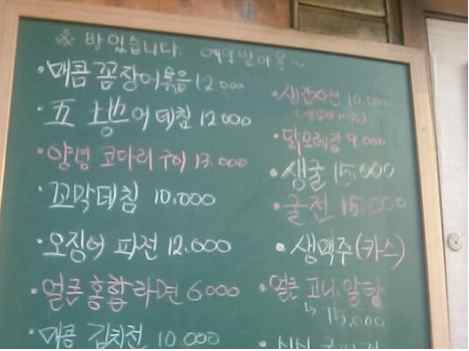 ※ 바 있습니다.
·매콤 꼼장어볶음 12000
·五 징어데침 12000
·양념 코다리 구이 13.000
·꼬막데침 10.000
·오징어 파전 12.000
·얼큰 홍합라면 6000
·매콤 김치전 10.000
9.000
·생굴 15.000
·굴전 15.000
·생맥주(카스)
·얼큰 고니, 알탕
↳ 15,000